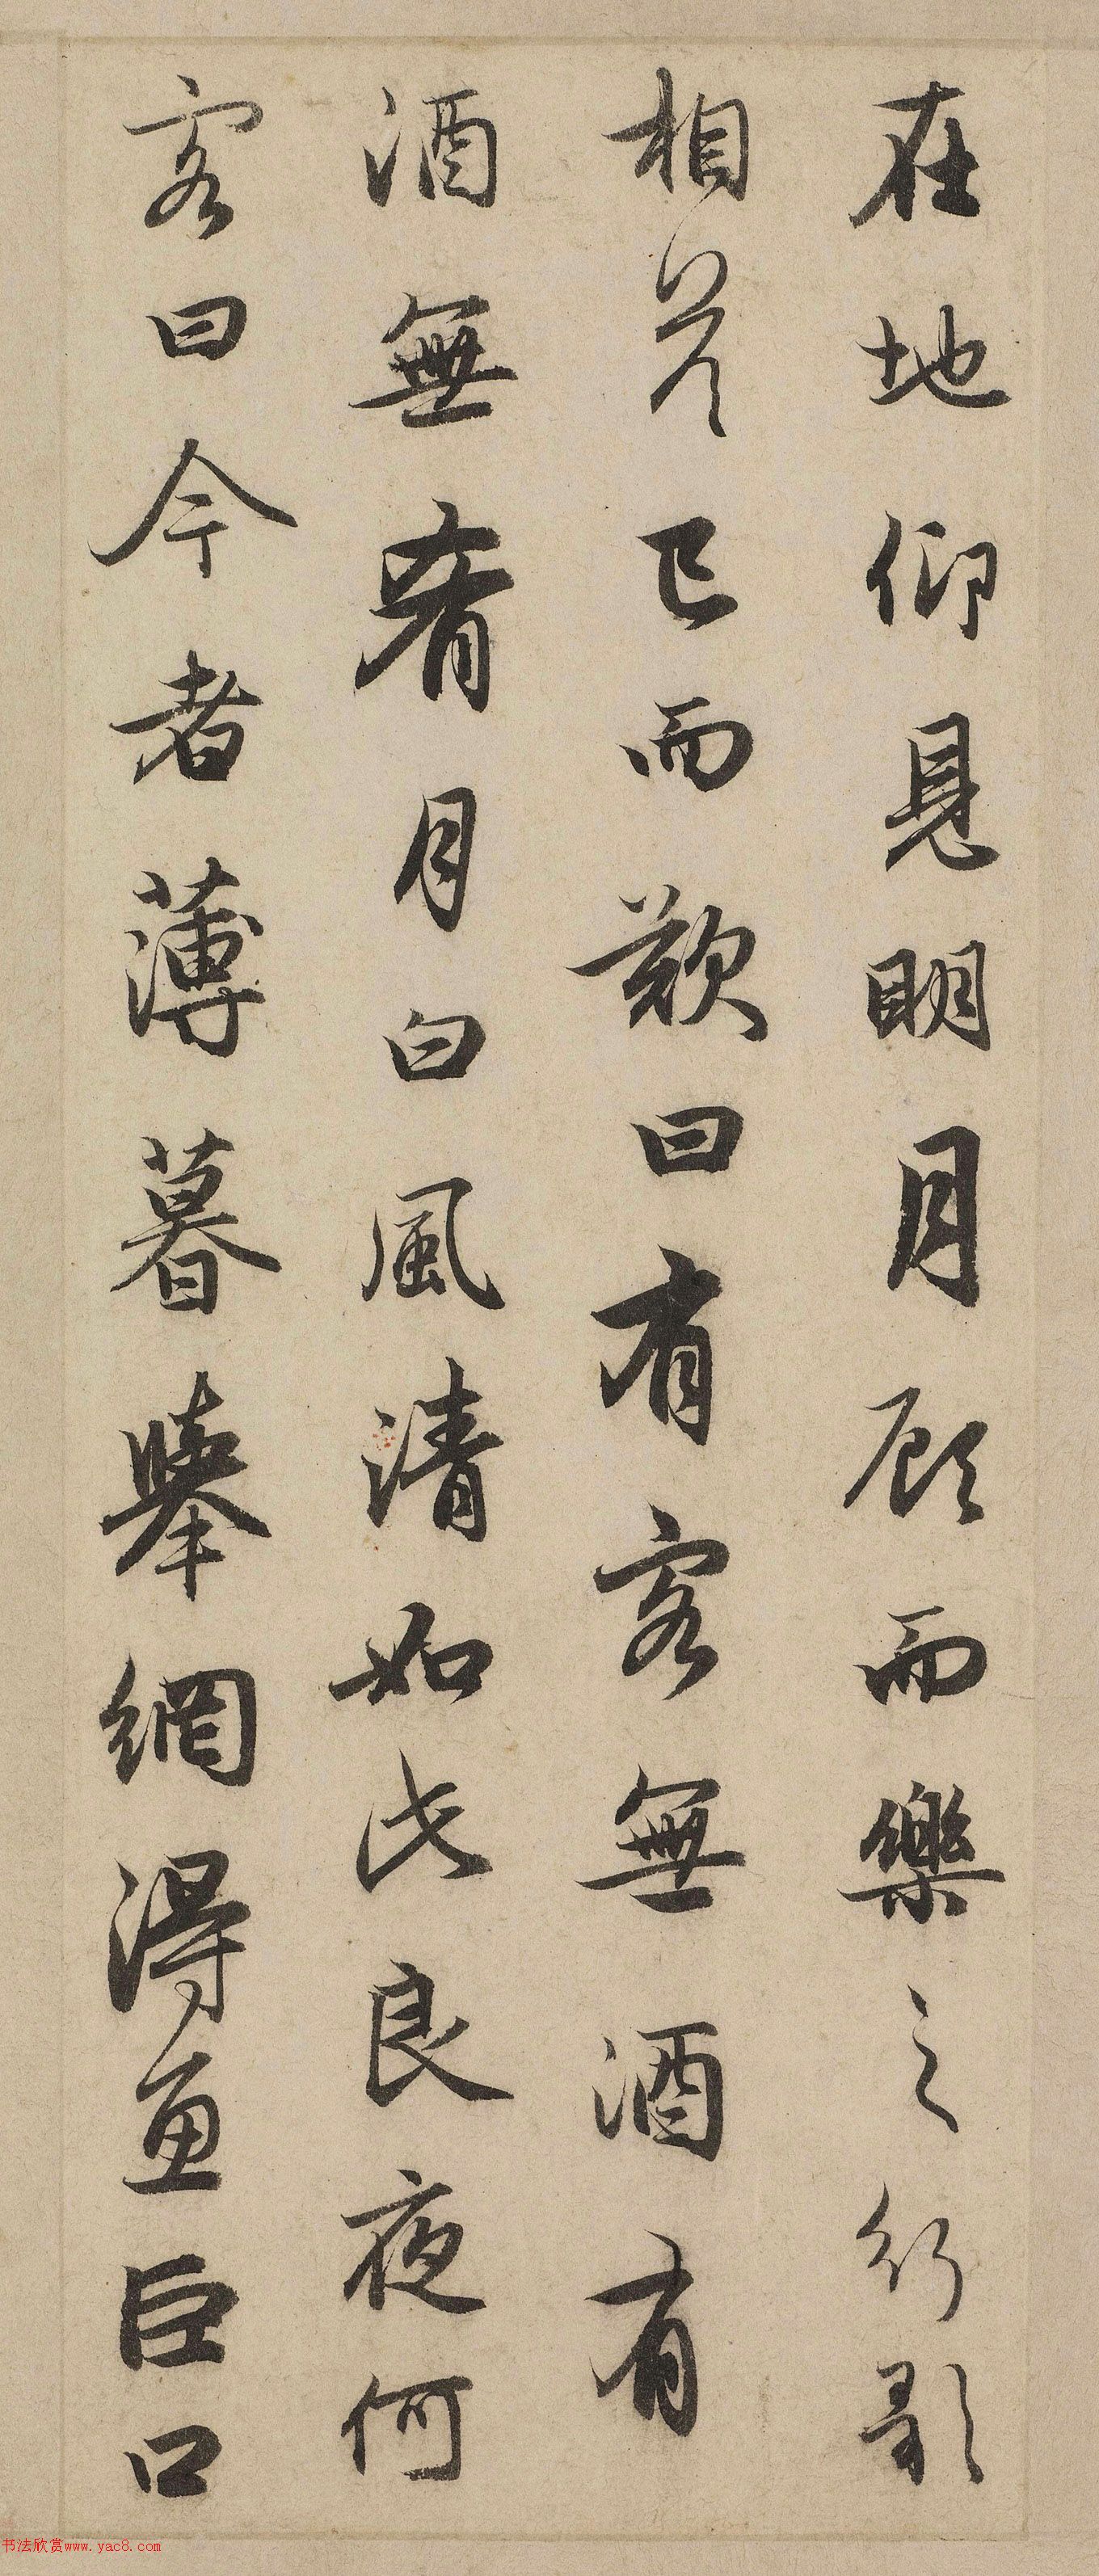 在地仰見明月顧而樂之行歌
相答已而歎曰有客無酒有
酒無肴月白風清如此良夜何
客曰今者薄暮舉網得魚巨口
书法欣赏www.yac8.com